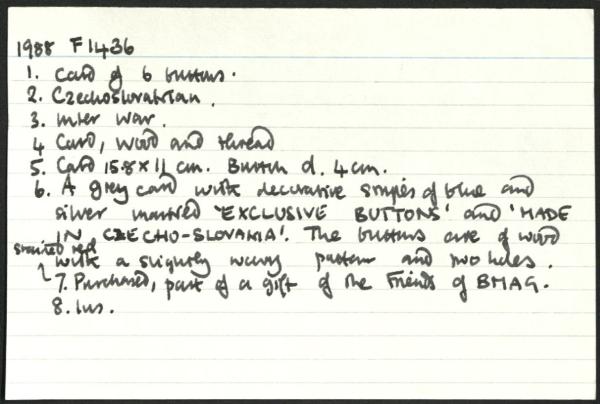 1988 F1436
1. Card of 6 buttons.
2. Czechoslovakian.
3. Inter War.
4 Card, Wood and thread
5. Card 15.8 x 11 cm. Button d. 4cm.
6. A grey card with decorative stripes of blue and
silver marked 'EXCLUSIVE BUTTONS' and 'MADE
IN CZECHO-SLOVAKIA'. The buttons are of wood
stained red
with a slightly wavy pattern and two holes.
7. Purchased, part of a gift of the Friends of BMAG.
8. Ins.